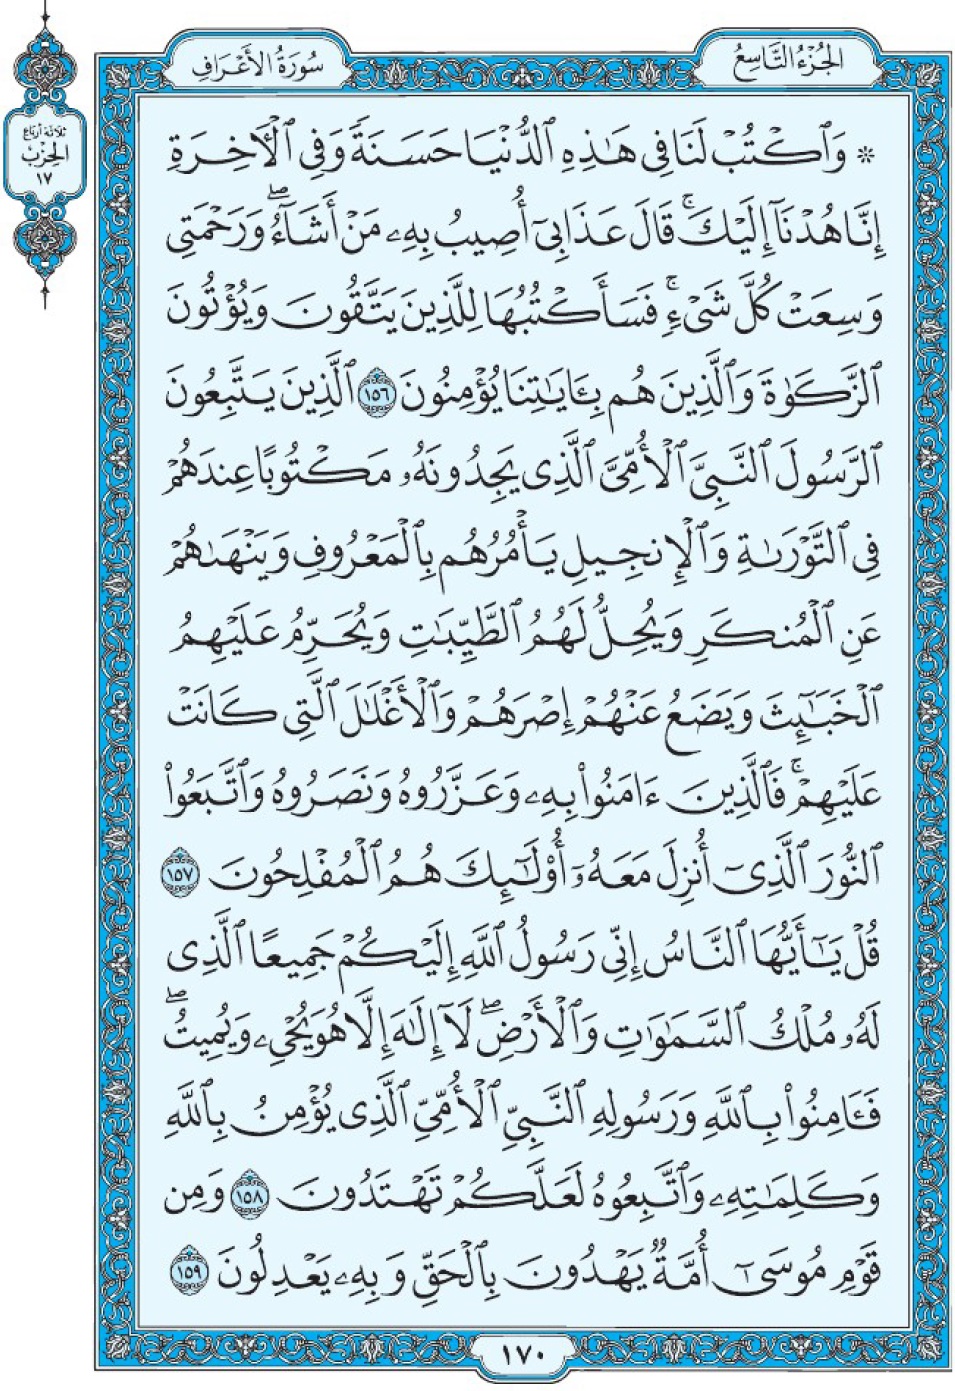 سُورَةُ الأَعْرَافِ
الجُزْءُ التَّاسِعُ
ثلاثة أرباع
الحِزْبُ
١٧
۞ وَٱكۡتُبۡ لَنَا فِي هَٰذِهِ ٱلدُّنۡيَا حَسَنَةٗ وَفِي ٱلۡأٓخِرَةِ
إِنَّا هُدۡنَآ إِلَيۡكَۚ قَالَ عَذَابِيٓ أُصِيبُ بِهِۦ مَنۡ أَشَآءُۖ وَرَحۡمَتِي
وَسِعَتۡ كُلَّ شَيۡءٖۚ فَسَأَكۡتُبُهَا لِلَّذِينَ يَتَّقُونَ وَيُؤۡتُونَ
ٱلزَّكَوٰةَ وَٱلَّذِينَ هُم بِـَٔايَٰتِنَا يُؤۡمِنُونَ ١٥٦ ٱلَّذِينَ يَتَّبِعُونَ
ٱلرَّسُولَ ٱلنَّبِيَّ ٱلۡأُمِّيَّ ٱلَّذِي يَجِدُونَهُۥ مَكۡتُوبًا عِندَهُمۡ
فِي ٱلتَّوۡرَىٰةِ وَٱلۡإِنجِيلِ يَأۡمُرُهُم بِٱلۡمَعۡرُوفِ وَيَنۡهَىٰهُمۡ
عَنِ ٱلۡمُنكَرِ وَيُحِلُّ لَهُمُ ٱلطَّيِّبَٰتِ وَيُحَرِّمُ عَلَيۡهِمُ
ٱلۡخَبَٰٓئِثَ وَيَضَعُ عَنۡهُمۡ إِصۡرَهُمۡ وَٱلۡأَغۡلَٰلَ ٱلَّتِي كَانَتۡ
عَلَيۡهِمۡۚ فَٱلَّذِينَ ءَامَنُواْ بِهِۦ وَعَزَّرُوهُ وَنَصَرُوهُ وَٱتَّبَعُواْ
ٱلنُّورَ ٱلَّذِيٓ أُنزِلَ مَعَهُۥٓ أُوْلَٰٓئِكَ هُمُ ٱلۡمُفۡلِحُونَ ١٥٧
قُلۡ يَٰٓأَيُّهَا ٱلنَّاسُ إِنِّي رَسُولُ ٱللَّهِ إِلَيۡكُمۡ جَمِيعًا ٱلَّذِي
لَهُۥ مُلۡكُ ٱلسَّمَٰوَٰتِ وَٱلۡأَرۡضِۖ لَآ إِلَٰهَ إِلَّا هُوَ يُحۡيِۦ وَيُمِيتُۖ
فَـَٔامِنُواْ بِٱللَّهِ وَرَسُولِهِ ٱلنَّبِيِّ ٱلۡأُمِّيِّ ٱلَّذِي يُؤۡمِنُ بِٱللَّهِ
وَكَلِمَٰتِهِۦ وَٱتَّبِعُوهُ لَعَلَّكُمۡ تَهۡتَدُونَ ١٥٨ وَمِن
قَوۡمِ مُوسَىٰٓ أُمَّةٞ يَهۡدُونَ بِٱلۡحَقِّ وَبِهِۦ يَعۡدِلُونَ ١٥٩
١٧٠